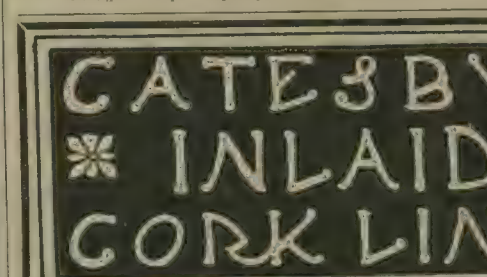 CATESBY
INLAID
CORK LIN